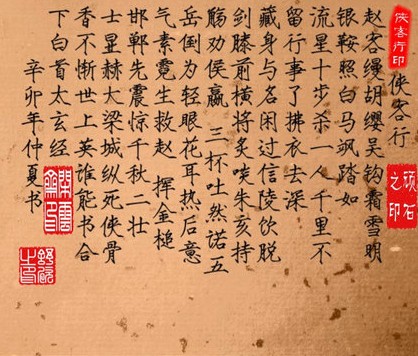 侠客行印
侠客行
硕石之印
赵客缦胡缨吴钩霜雪明
银鞍照白马飒踏如
流星十步杀一人千里不
留行事了拂衣去深
藏身与名闲过信陵饮脱
剑膝前横将炙啖朱亥持
觞劝侯嬴 三杯吐然诺五
岳倒为轻眼花耳热后意
气素霓生救赵 挥金槌
邯郸先震惊千秋二壮
士显赫大梁城纵死侠骨
香不惭世上英谁能书合
下白首太玄经
辛卯年仲夏书